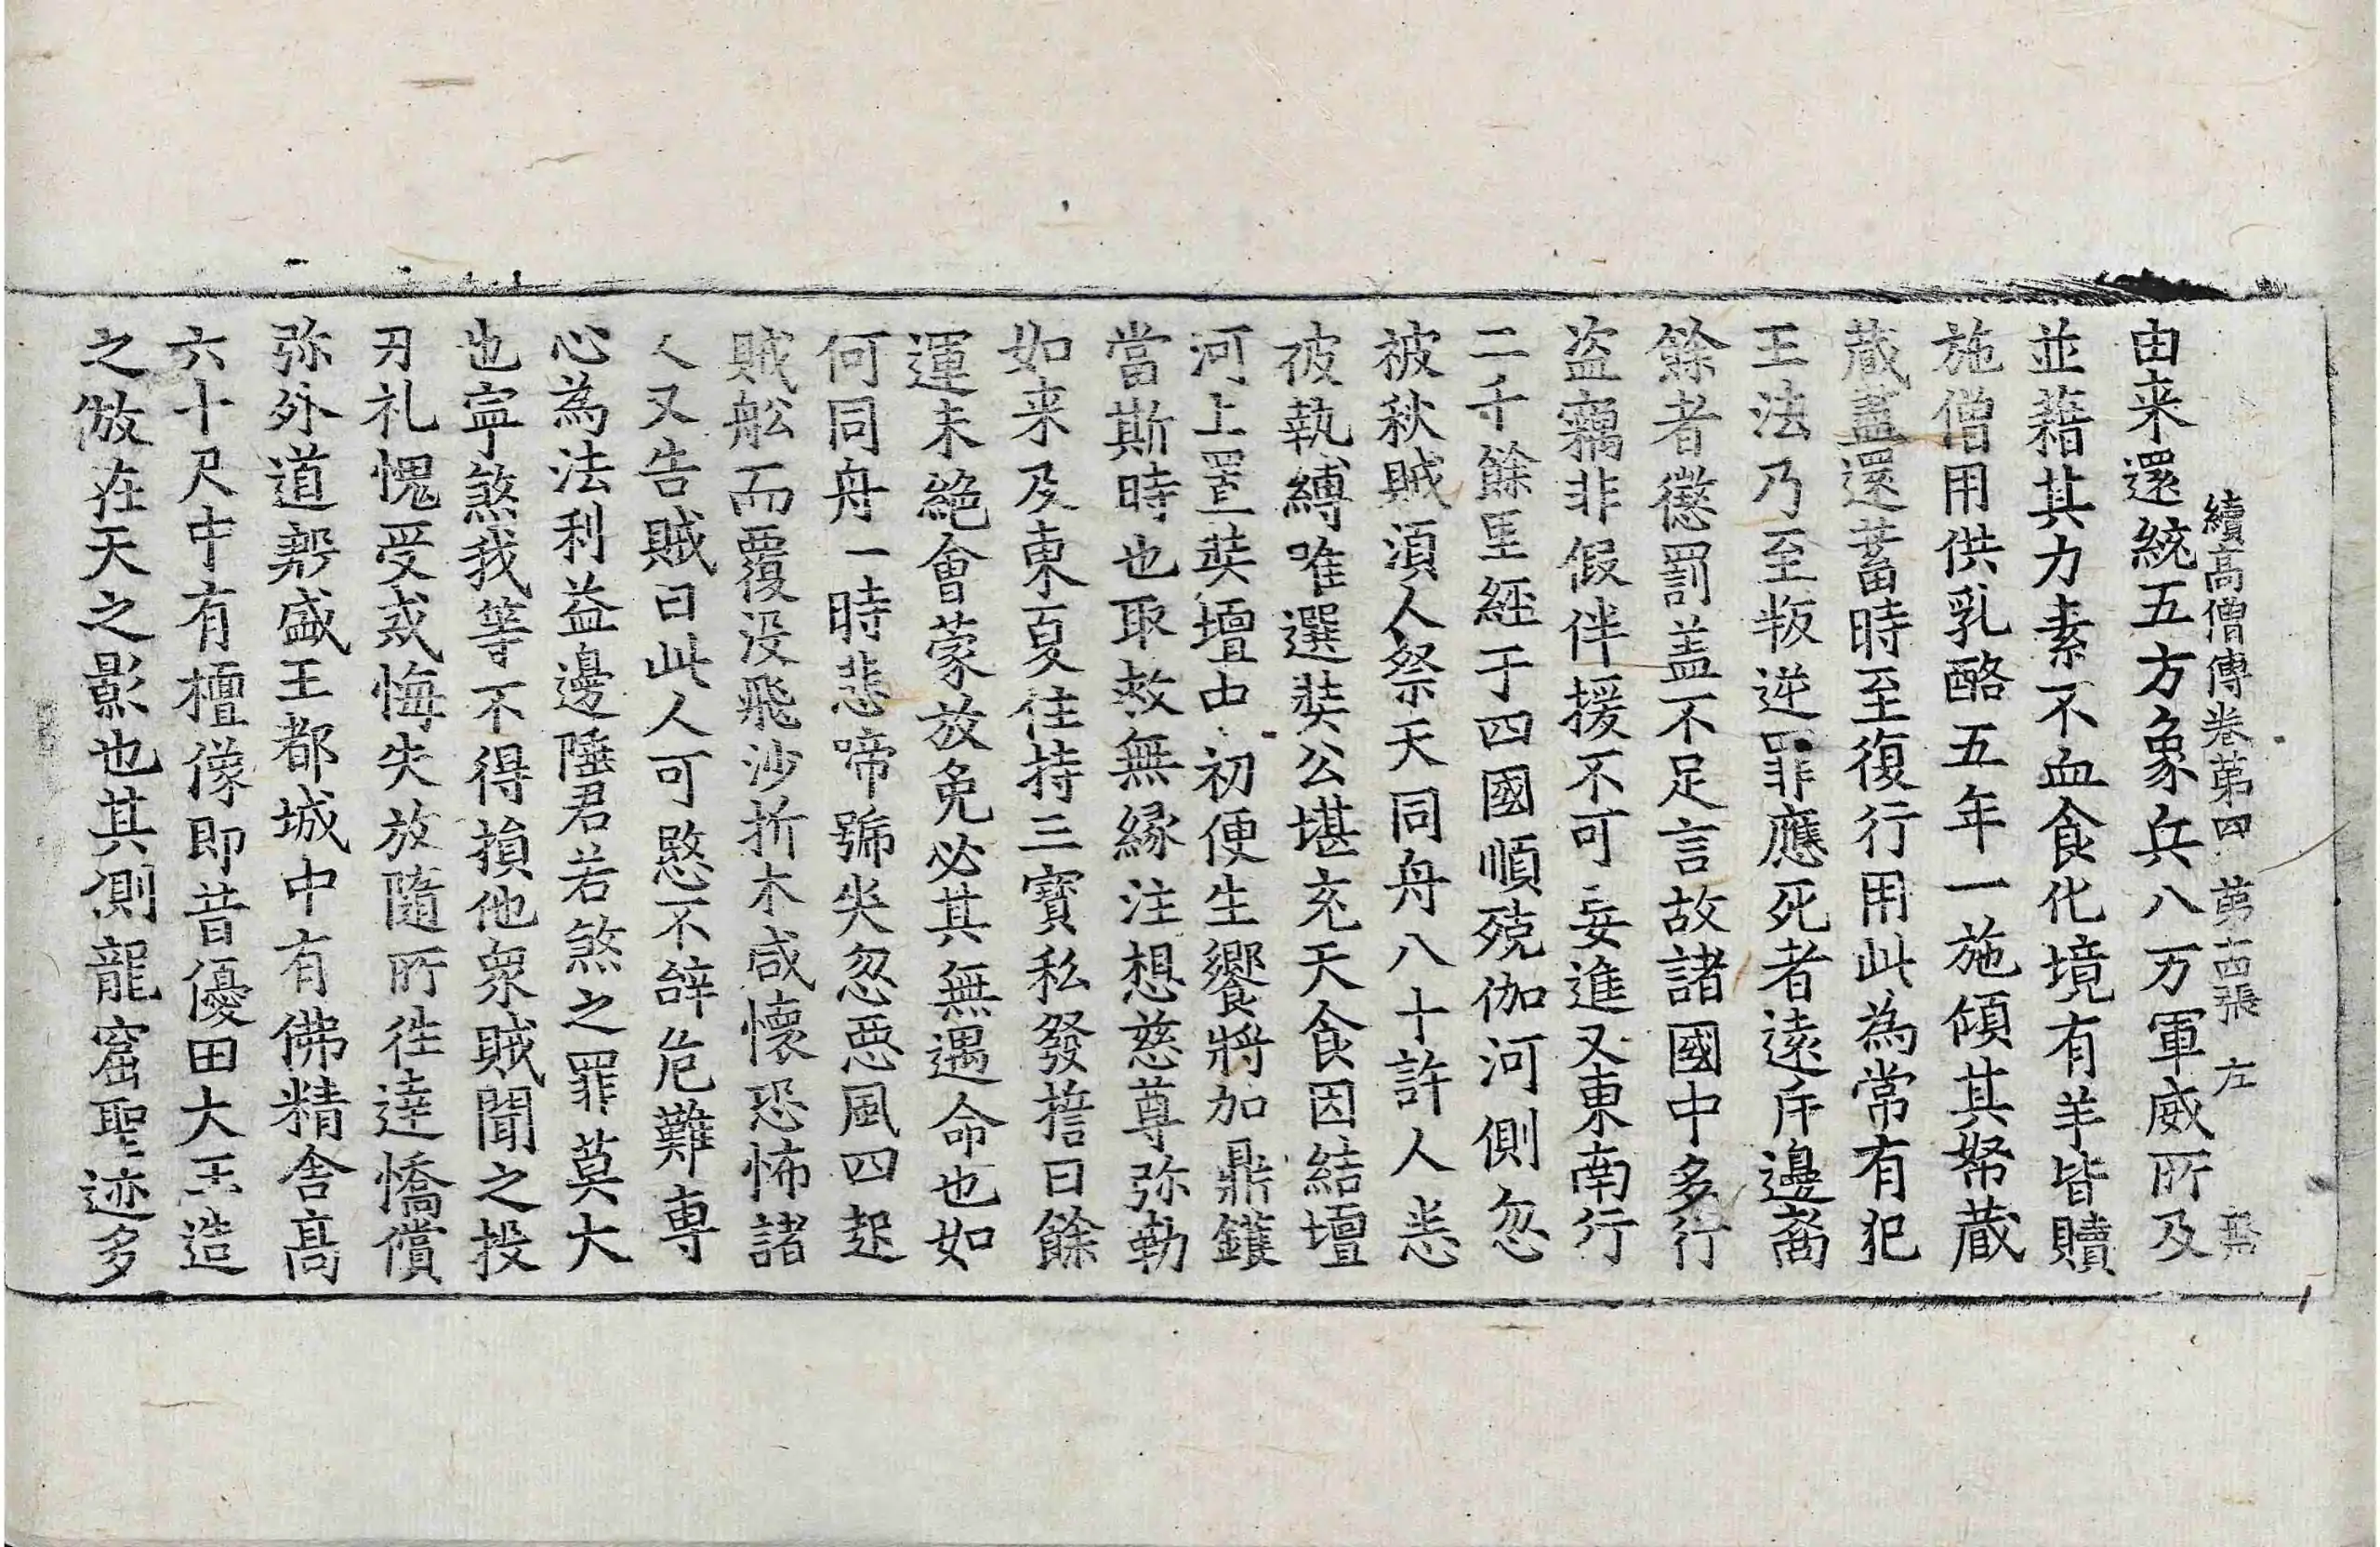 續高僧傳卷第四 第十四張 左
由来還統五方象兵八万軍威所及
並藉其力素不血食化境有羊皆贖
施僧用供乳酪五年一施傾其帑蔵
蔵盡還蓄時至復行用此為常有犯
王法乃至叛逆罪應死者遠斥邊裔
餘者懲罰盖不足言故諸國中多行
盗竊非假伴援不可妄進又東南行
二千餘里經于四國順殑伽河側忽
被秋賊湏人祭天同舟八十許人悉
被執縛唯選奘公堪充天食因結壇
河上置奘壇中初便生饗將加鼎鑊
當斯時也取救無緣注想慈尊弥勒
如来及東夏住持三寳私發誓曰餘
運未絶會蒙放免必其無遇命也如
何同舟一時悲啼號哭忽惡風四起
賊舩而覆没飛沙折木咸懷恐怖諸
人又告賊曰此人可愍不辝危難専
心為法利益邊陲君若煞之罪莫大
也寧煞我等不得損他衆賊聞之投
刃礼愧受戒悔失放隨所往達憍償
弥外道㔟盛王都城中有佛精舎髙
六十尺中有檀像即昔優田大王造
之倣在天之影也其側龍窟聖迹多